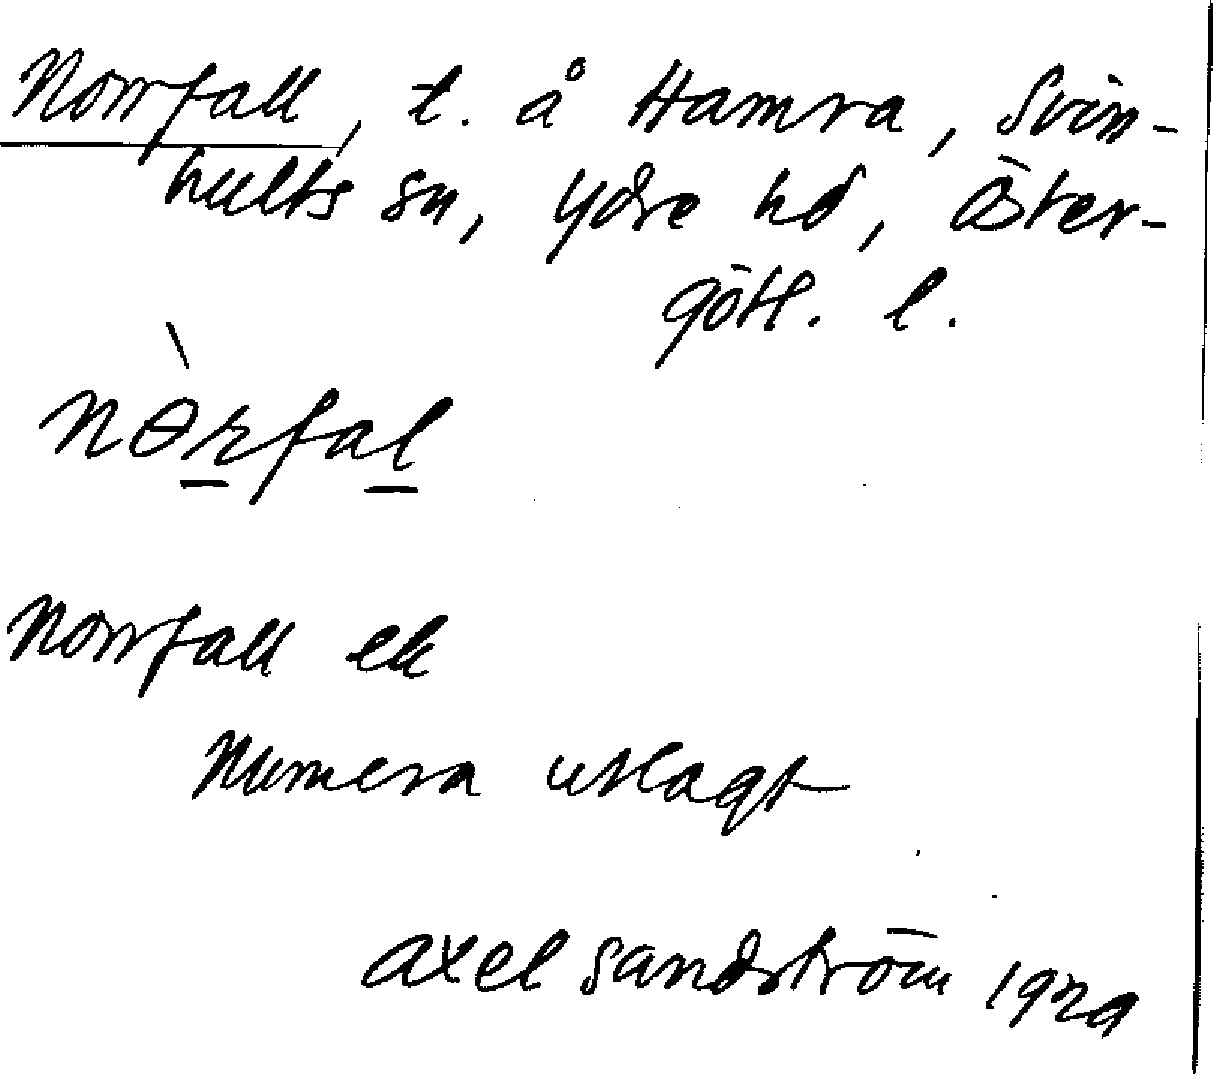 Norrfall, t. å Hamra, Svin-
hults sn, Ydre hd, Öster-
götl. l.
nɵ̀rfal
Norrfall ek
Numera utlagt
Axel Sandström 1929